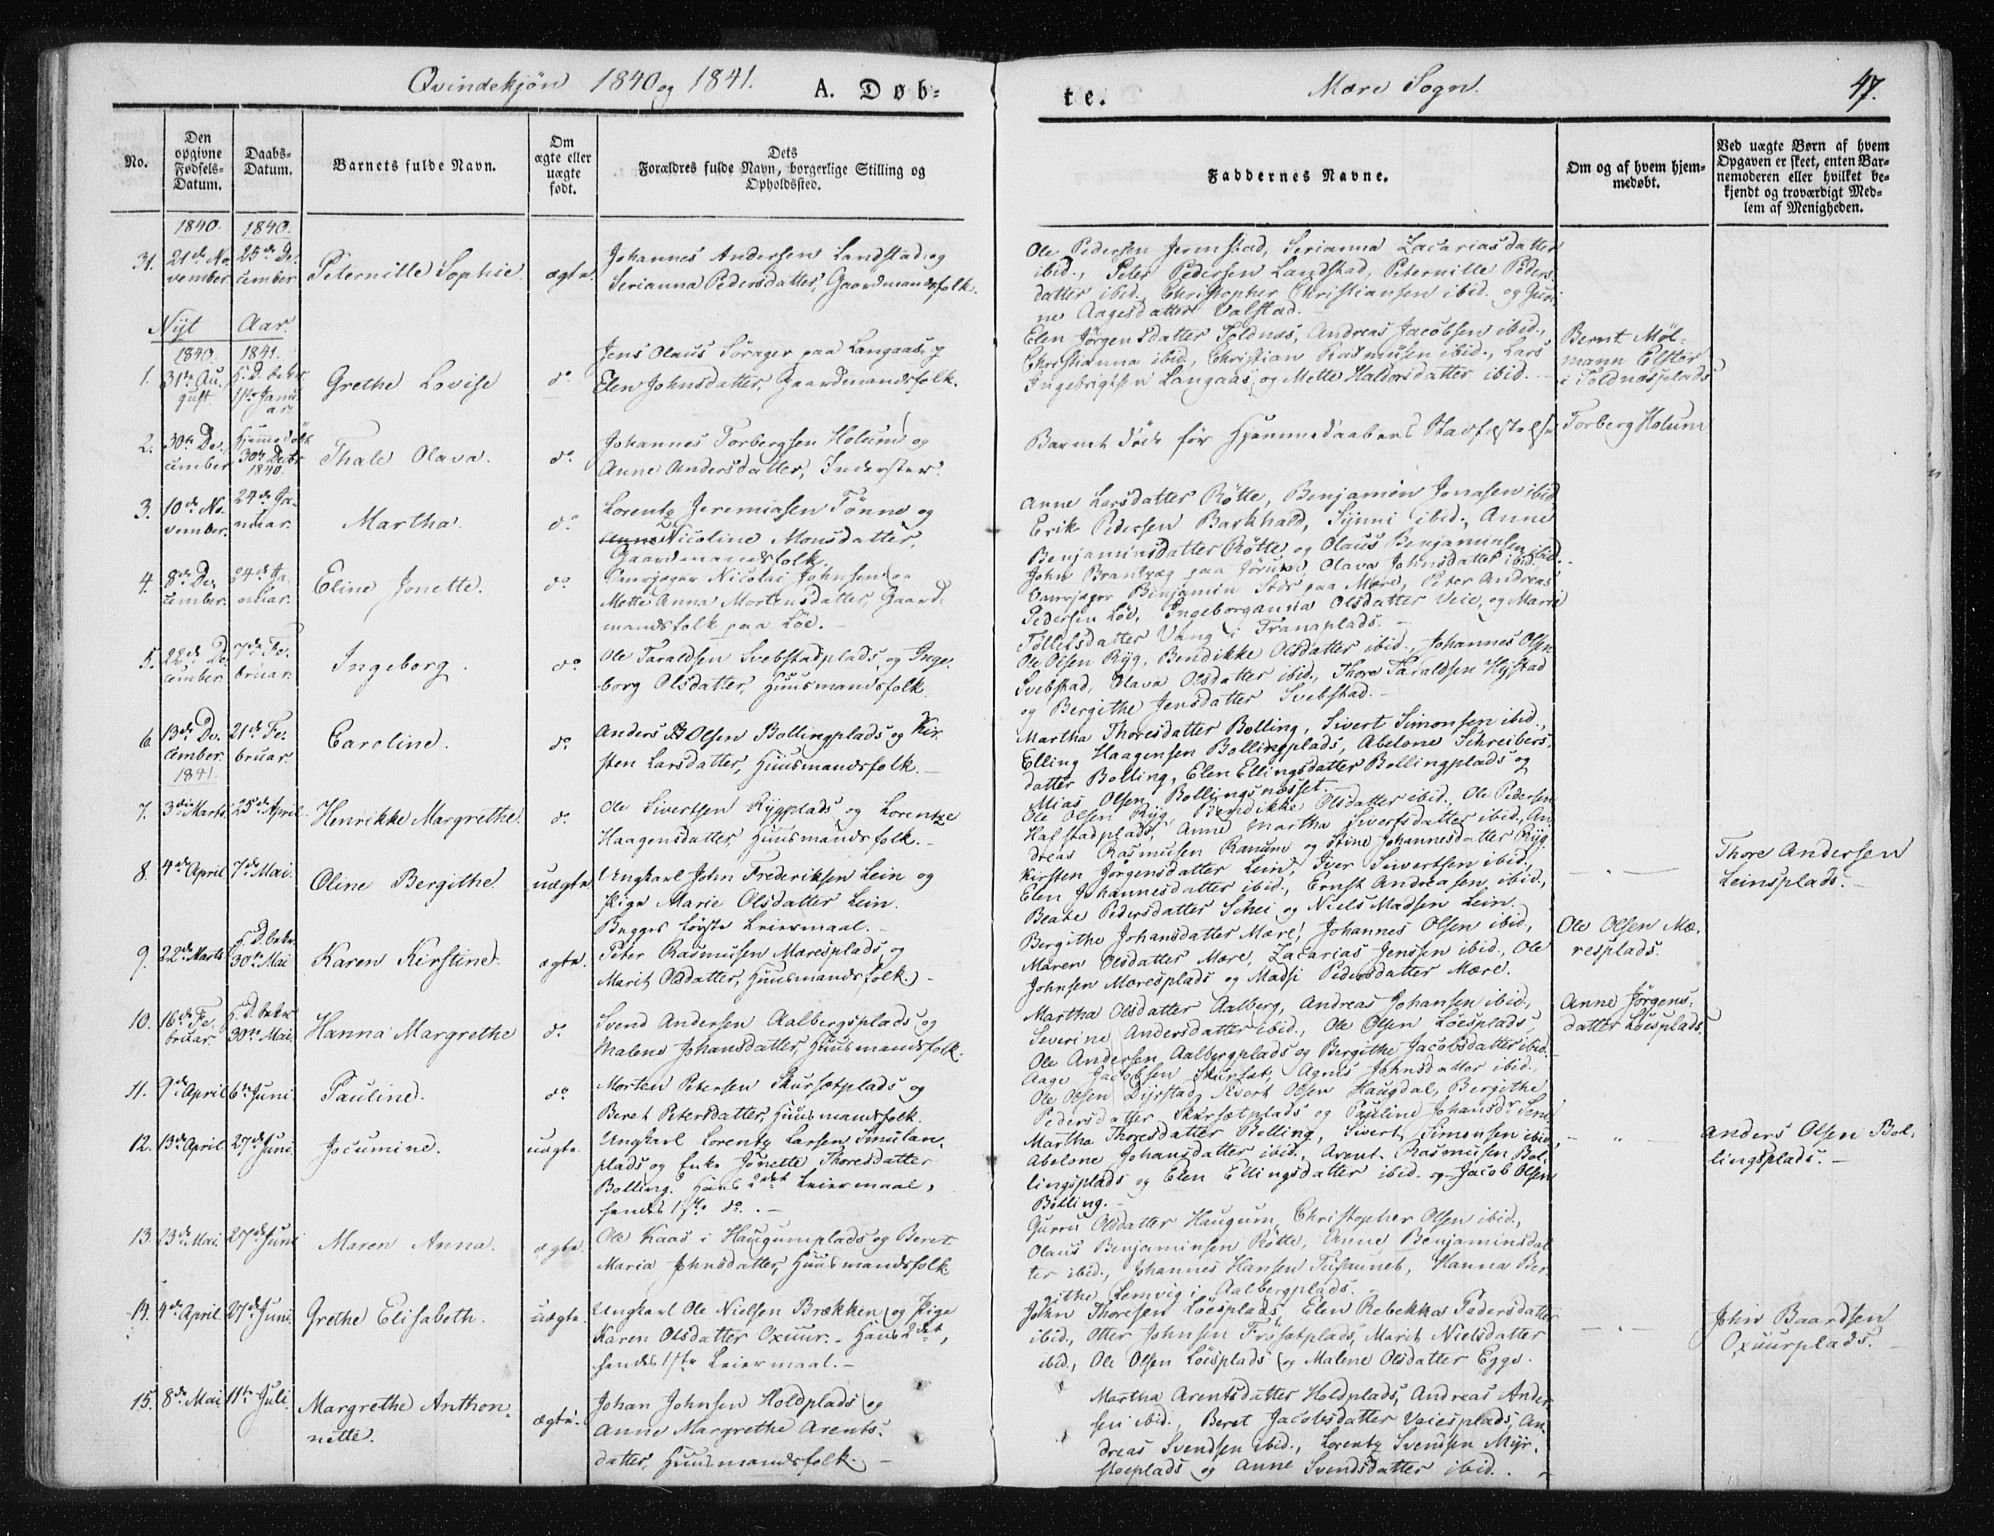 Qvindekjøn 1840 og 1841. A. Døb-
te. Mære Sogn. 47.
No.
Den opgivne Fødsels-Datum.
Daabs-Datum.
Barnets fulde Navn.
Om ægte eller uægte født.
Dets Forældres fulde Navn, borgerlige Stilling og Opholdssted.
Faddernes Navne.
Om og af hvem hjem-
medøbt.
Ved uægte Børn af hvem
Opgaven er skeet, enten Bar-
nemoderen eller hvilket be-
kjendt og troværdigt Med-
lem af Menigheden.
1840. 1840.
31. 21de No-
vember. 25de De-
cember. Peternille Sophie. ægte.
Johannes Andersen Landstad og
Serianna Pedersdatter, Gaardmandsfolk.
Ole Pedersen Jermstad, Serianna Zacariasdatter
ibid., Peter Pedersen Landstad, Peternille Peders-
datter ibid. Christopher Christiansen ibid. og Guri-
ne Aagesdatter Valstad.
Nyt Aar.
1840. 1841.
1. 31te Au-
gust. H.D. bekr.
1ste Janu-
ar. Grethe Lovise do
Jens Olaus Sørager paa Langaas og
Elen Johnsdatter, Gaardmandsfolk.
Elen Jørgensdatter Toldnæs, Andreas Jacobsen ibid.,
Christianna ibid., Christian Rasmusen ibid., Lars
Ingebrigtsen Langaas, og Mette Haldorsdatter ibid.
Bernt Møl-
mann Elster
i Toldnæsplads
2. 30te De-
cember Hjemmedøbt
30te Decbr
1840. Thale Olava. do
Johannes Torbergsen Holum og
Anne Andersdatter, Inderster.
Barnet døde før Hjemmedaabens Stadfæstelse
Torberg Holum
3. 10de No-
vember. 24de Ja-
nuar. Martha. do
Lorentz Jeremiasen Tønne og
Nicoline Monsdatter,
Gaardmandsfolk.
Anne Larsdatter Røtte, Benjamin Jonasen ibid.
Erik Pedersen Barkhald, Synni ibid., Anne
Benjaminsdatter Røtte og Olaus Benjaminsen ibid.
4. 8de De-
cember. 24de Ja-
nuar. Eline Jonette. do
Nicolai Johnsen og
Mette Anna Mortensdatter, Gaard-
mandsfolk paa Løe.
John Brandvæg paa Jørum, Olava Johnsdatter ibid.,
Benjamin Stor paa Mære, Peter Andreas
Pedersen Løe, Ingeborganna Olsdatter Veie, og Marie
Tollefsdatter Vang i Tranaplads.
5. 22de De-
cember. 7de Fe-
bruar. Ingeborg. do
Ole Taraldsen Svebstadplads og Inge-
borg Olsdatter, Huusmandsfolk.
Ole Olsen Ryg, Bendikke Olsdatter ibid., Johannes Olsen
Svebstad, Olava Olsdatter ibid., Thore Taraldsen Hystad
og Bergithe Jensdatter Svebstad.
6. 13de De-
cember. 21de Fe-
bruar. Caroline. do
Anders Olsen Bollingplads og Kir-
sten Larsdatter, Huusmandsfolk.
Martha Thoresdatter Bolling, Sivert Simonsen ibid.,
Elling Haagensen Bollingplads, Abelone Schreibers-
datter Bolling, Elen Ellingsdatter Bollingplads og
Mias Olsen Bollingsnæsset.
1841.
7. 3die Marts. 25de April. Henrikke Margrethe. do
Ole Sivertsen Rygplads og Lorentze
Haagensdatter, Huusmandsfolk.
Ole Olsen Ryg, Bendikke Olsdatter ibid., Ole Pedersen
Halstadplads, Anne Martha Sivertsdatter ibid., An-
dreas Rasmusen Ranum og Stine Johannesdatter Ryg.
8. 4de April 7de Mai. Oline Bergithe. uægte.
Ungkarl John Frederiksen Lein og
Pige Marie Olsdatter Lein.
Begges første Leiermaal.
Kirsten Jørgensdatter Lein, Iver Seivertsen ibid.,
Elen Johannesdatter ibid., Ernst Andreasen ibid.,
Beate Pedersdatter Schei og Niels Madsen Lein.
Thore Andersen
Leinsplads.
9. 22de Marts H.D. bekr.
30te Mai Karen Kirstine. ægte.
Peter Rasmusen Mæresplads og
Marit Olsdatter, Huusmandsfolk.
Bergithe Johansdatter Mære, Johannes Olsen ibid,
Maren Olsdatter Mære, Zacarias Jensen ibid., Ole
Johnsen Mæresplads og Madsi Pedersdatter Mære.
Ole Olsen Mæ-
resplads.
10. 16de Fe-
bruar. H.D. bekr.
30te Mai. Hanna Margrethe do
Svend Andersen Aalbergsplads og
Malene Johansdatter, Huusmandsfolk.
Martha Olsdatter Aalberg, Andreas Johansen ibid,
Severine Andersdatter ibid., Ole Olsen Løesplads,
Ole Andersen Aalbergplads og Bergithe Jacobsdatter ibid.
Anne Jørgens-
datter Løesplads
11. 9de April 6te Juni. Pauline. do
Morten Petersen Skursætplads og
Beret Petersdatter, Huusmandsfolk.
Aage Jacobsen Skursæt, Agnes Johnsdatter ibid.,
Ole Olsen Dyrstad, Sivert Olsen Haugdal, Bergithe
Pedersdatter Skursætplads og Pauline Johansdr
12. 13de April. 27de Juni. Jocumine. uægte.
Ungkarl Lorentz Larsen Smulan-
plads og Enke Jonette Thoresdatter
Bolling. Hans 2det Leiermaal,
hendes 1ste do.
Martha Thoresdatter Bolling, Sivert Simonsen ibid,
Abelone Johansdatter ibid., Arent Rasmusen Bol-
lingsplads og Elen Ellingsdatter ibid. og Jacob Olsen
Bolling.
Anders Olsen Bol-
lingsplads.
13. 23de Mai. 27de Juni Maren Anna. ægte.
Ole Kaas i Haugumplads og Beret
Maria Johnsdatter, Huusmandsfolk
Gurru Olsdatter Haugum, Christopher Olsen ibid.,
Olaus Benjaminsen Røtte, Anne Benjaminsdat-
ter ibid., Johannes Hansen Tuftaunet, Hanna Ber-
githe Lemvig i Aalbergplads.
14. 4de April. 27de Juni. Grethe Elisabeth. uægte.
Ungkarl Ole Nielsen Brækken og Pige
Karen Olsdatter Oxuur. Hans 2det,
hendes 1ste Leiermaal.
John Thoresen Løesplads, Elen Rebekka Pedersdatter
ibid., Otter Johnsen Frøsetplads, Marit Nielsdatter
ibid., Ole Olsen Løesplads og Malene Olsdatter Egge.
John Baardsen
Oxuurplads.
15. 8de Mai 11te Juli. Margrethe Anthon-
nette. ægte.
Johan Johnsen Holdplads og
Anne Margrethe Arents-
datter, Huusmandsfolk.
Martha Arentsdatter Holdplads, Andreas Ander-
sen ibid., Beret Jacobsdatter Veiesplads, An-
dreas Svendsen ibid., Lorentz Svendsen Myr-
og Anne Svendsdatter ibid.